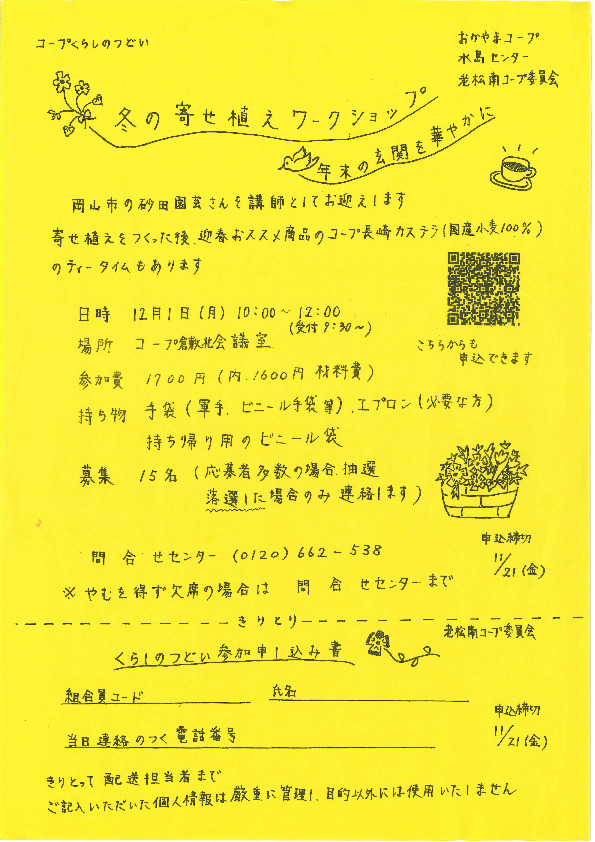 コープくらしのつどい
おかやまコープ
水島センター
老松南コープ委員会
冬の寄せ植えワークショップ
年末の玄関を華やかに
岡山市の砂田園芸さんを講師としてお迎えします
寄せ植えをつくった後、迎春おススメ商品のコープ長崎カステラ(国産小麦100%)
のティータイムもあります
日時 12月1日(月) 10:00～12:00
(受付9:30～)
場所 コープ倉敷北会議室
こちらからも
申込できます
参加費 1700円(内、1600円材料費)
持ち物 手袋(軍手、ビニール手袋等)、エプロン(必要な方)
持ち帰り用のビニール袋
募集 15名(応募者多数の場合、抽選
落選した場合のみ連絡します)
申込締切
11/21(金)
問合せセンター (0120)662-538
※やむを得ず欠席の場合は 問合せセンターまで
きりとり
老松南コープ委員会
くらしのつどい参加申し込み書
組合員コード 氏名
申込締切
11/21(金)
当日連絡のつく電話番号
きりとって配送担当者まで
ご記入いただいた個人情報は厳重に管理し、目的以外には使用いたしません